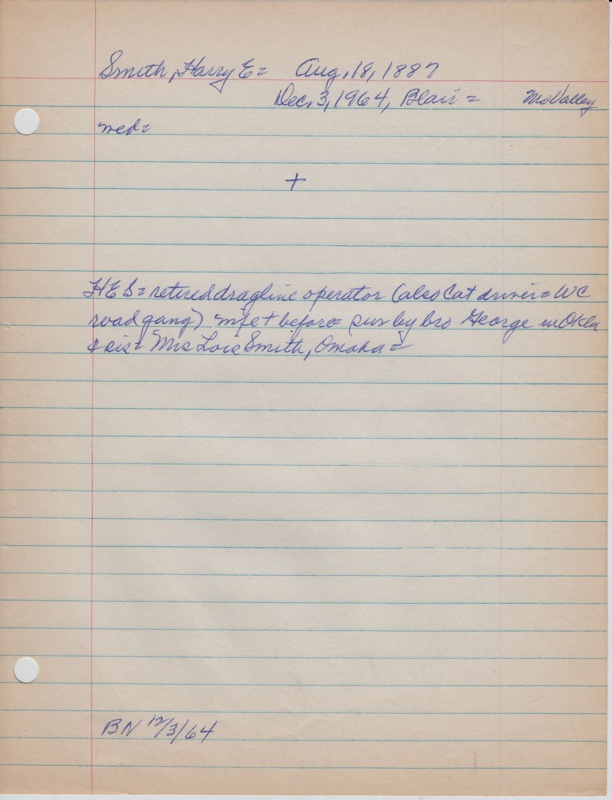 Smith, Harry E= Aug, 18, 1887
Dec, 3, 1964, Blair = MoValley
med=
+
HES= retired dragline operator (also Cat driver= WC
road gang) wife + before= surv by bro George in Okla
& sis= Mrs Lois Smith, Omaha=
BN 12/3/64